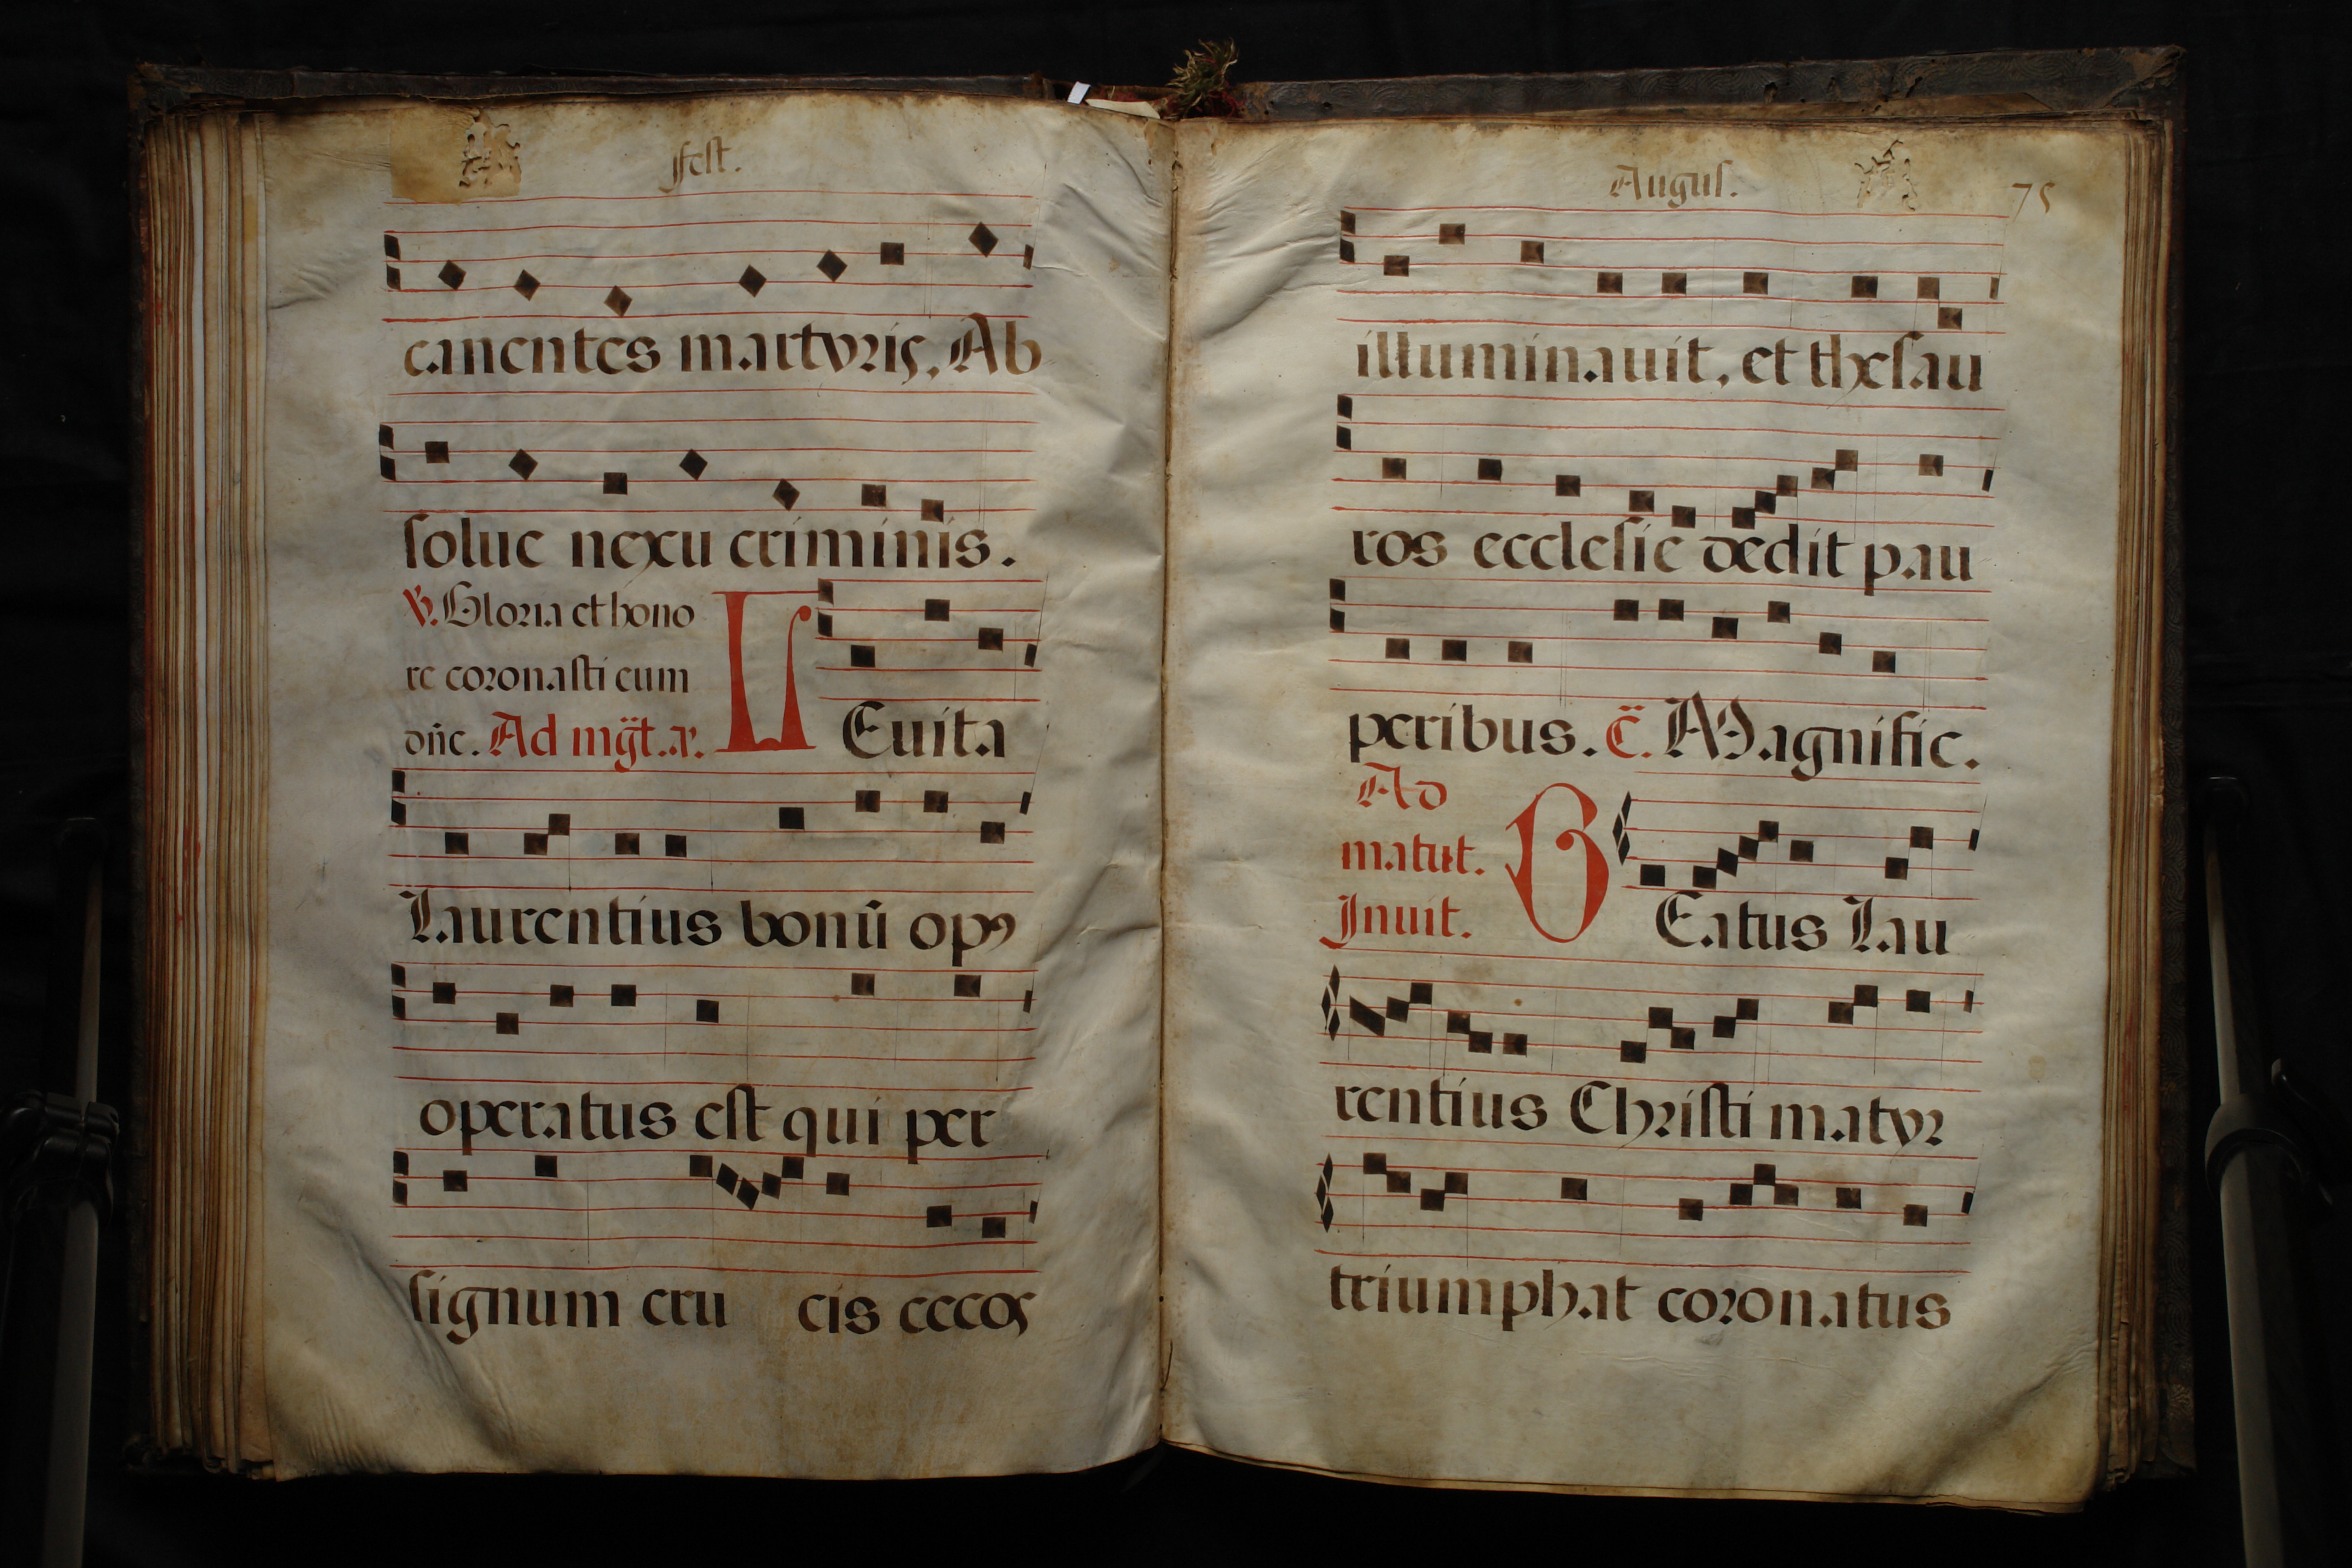 fest.
canentes martyris, Ab
solue nexu criminis.
℣. Gloria et hono
re coronasti eum
dn̄e. Ad mg̈t. a.
L
Euita
Laurentius bonū opꝰ
operatus est qui per
signum cru cis cecos
Augus. 75
illuminauit, et thesau
ros ecclesie dedit pau
peribus. C̈. Magnific.
Ad
matut.
Inuit.
B
Eatus Lau
rentius Christi matyr
triumphat coronatus